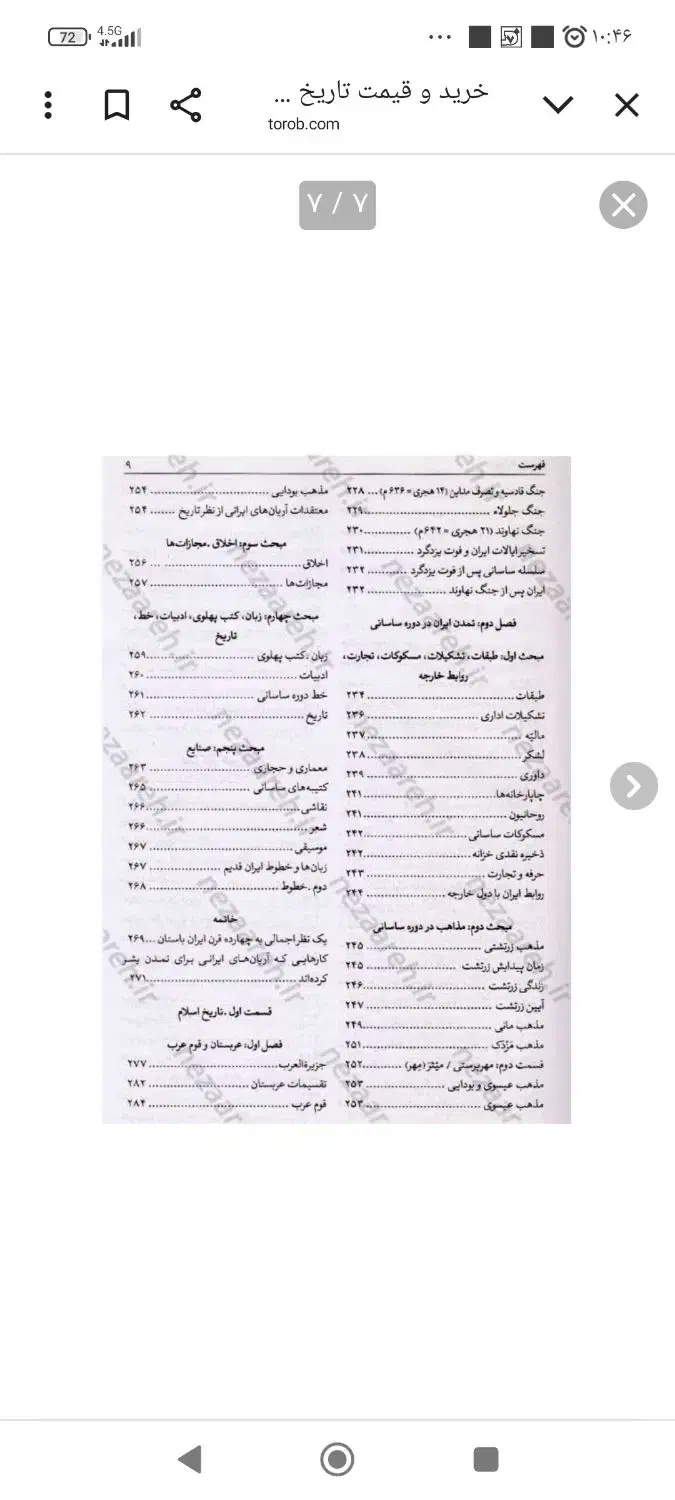 72
4.5G
...
۱۰:۴۶
خرید و قیمت تاریخ ...
torob.com
۷ / ۷
فهرست
۹
جنگ قادسیه و تصرف مداین (۱۴ هجری = ۶۳۶ م) ... ۲۲۸
جنگ جلولاء ... ۲۲۹
جنگ نهاوند (۲۱ هجری = ۶۴۲ م) ... ۲۳۰
تسخیر ایالات ایران و فوت یزدگرد ... ۲۳۱
سلسله ساسانی پس از فوت یزدگرد ... ۲۳۲
ایران پس از جنگ نهاوند ... ۲۳۲
فصل دوم: تمدن ایران در دوره ساسانی
مبحث اول: طبقات، تشکیلات، مسکوکات، تجارت،
روابط خارجه
طبقات ... ۲۳۴
تشکیلات اداری ... ۲۳۶
مالیّه ... ۲۳۷
لشکر ... ۲۳۸
داوری ... ۲۳۹
چاپارخانه‌ها ... ۲۴۱
روحانیون ... ۲۴۱
مسکوکات ساسانی ... ۲۴۲
ذخیره نقدی خزانه ... ۲۴۲
حرفه و تجارت ... ۲۴۳
روابط ایران با دول خارجه ... ۲۴۴
مبحث دوم: مذاهب در دوره ساسانی
مذهب زرتشتی ... ۲۴۵
زمان پیدایش زرتشت ... ۲۴۵
زندگی زرتشت ... ۲۴۶
آیین زرتشت ... ۲۴۷
مذهب مانی ... ۲۴۹
مذهب مَزْدَک ... ۲۵۱
قسمت دوم: مهرپرستی / میْثرَ (مِهر) ... ۲۵۲
مذهب عیسوی و بودایی ... ۲۵۳
مذهب عیسوی ... ۲۵۳
مذهب بودایی ... ۲۵۴
معتقدات آریان‌های ایرانی از نظر تاریخ ... ۲۵۴
مبحث سوم: اخلاق .مجازات‌ها
اخلاق ... ۲۵۶
مجازات‌ها ... ۲۵۷
مبحث چهارم: زبان، کتب پهلوی، ادبیات، خط،
تاریخ
زبان .کتب پهلوی ... ۲۵۹
ادبیات ... ۲۶۰
خط دوره ساسانی ... ۲۶۱
تاریخ ... ۲۶۲
مبحث پنجم: صنایع
معماری و حجاری ... ۲۶۳
کتیبه‌های ساسانی ... ۲۶۵
نقاشی ... ۲۶۶
شعر ... ۲۶۶
موسیقی ... ۲۶۷
زبان‌ها و خطوط ایران قدیم ... ۲۶۷
دوم .خطوط ... ۲۶۸
خاتمه
یک نظر اجمالی به چهارده قرن ایران باستان ... ۲۶۹
کارهایی که آریان‌های ایرانی برای تمدن بشر
کرده‌اند ... ۲۷۱
قسمت اول .تاریخ اسلام
فصل اول: عربستان و قوم عرب
جزیرةالعرب ... ۲۷۷
تقسیمات عربستان ... ۲۸۲
قوم عرب ... ۲۸۴
nezaareh.ir